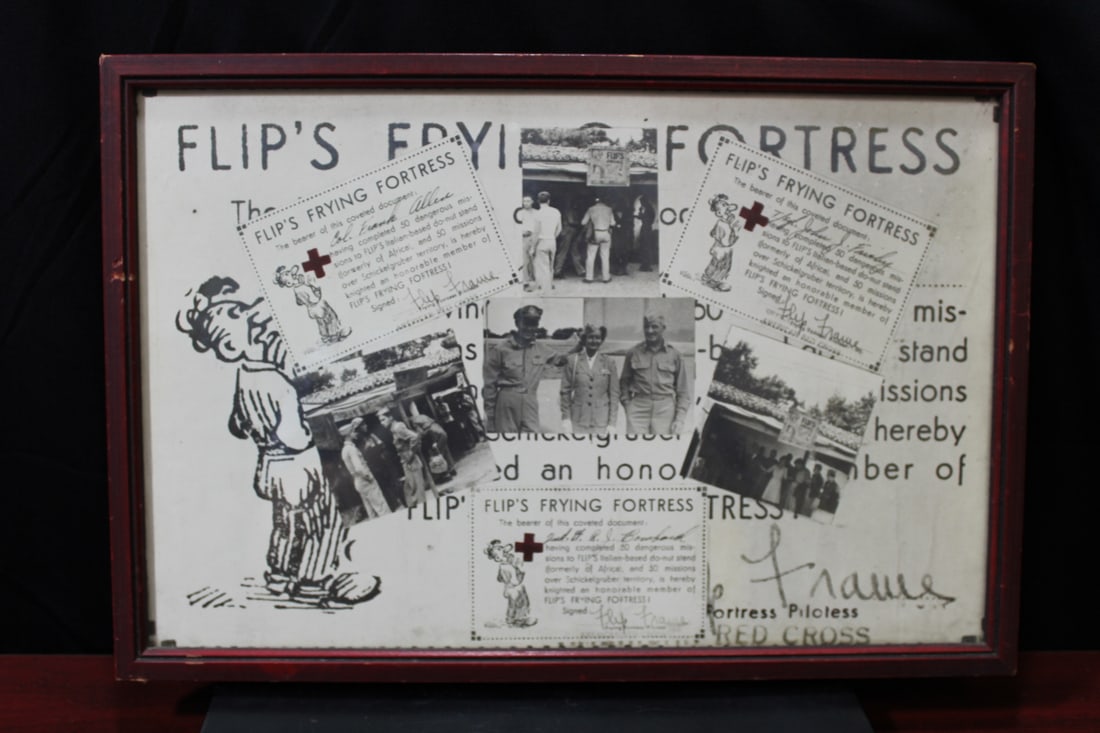 FLIP'S FRYI FORTRESS
The
mis-
stand
issions
Schickelgruber
hereby
ed an hono
ber of
FLIP'
TRESS!
Frame
Fortress Pilotess
RED CROSS
FLIP'S FRYING FORTRESS
The bearer of this coveted document,
Col. Frank Allen
having completed 50 dangerous mis-
sions to FLIP'S Italian-based do-nut stand
(formerly of Africa), and 50 missions
over Schickelgruber territory, is hereby
knighted an honorable member of
FLIP'S FRYING FORTRESS!
Signed Flip Frame
FLIP'S
FLIP'S FRYING FORTRESS
The bearer of this coveted document,
having completed 50 dangerous mis-
sions to FLIP'S Italian-based do-nut stand
(formerly of Africa), and 50 missions
over Schickelgruber territory, is hereby
knighted an honorable member of
FLIP'S FRYING FORTRESS!
Signed Flip Frame
FLIP'S FRYING FORTRESS
The bearer of this coveted document,
having completed 50 dangerous mis-
sions to FLIP'S Italian-based do-nut stand
(formerly of Africa), and 50 missions
over Schickelgruber territory, is hereby
knighted an honorable member of
FLIP'S FRYING FORTRESS!
Signed Flip Frame